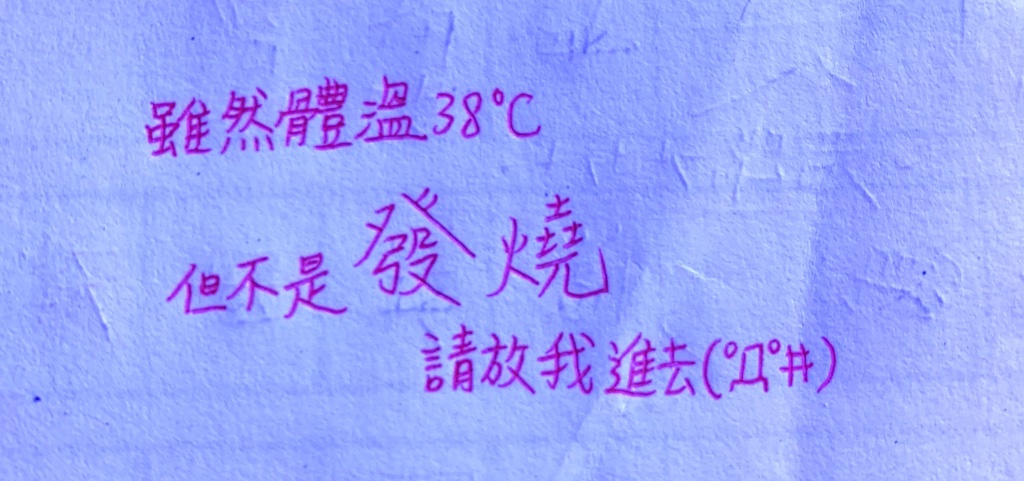 雖然體溫38°C
但不是發燒
請放我進去(°Д°井)